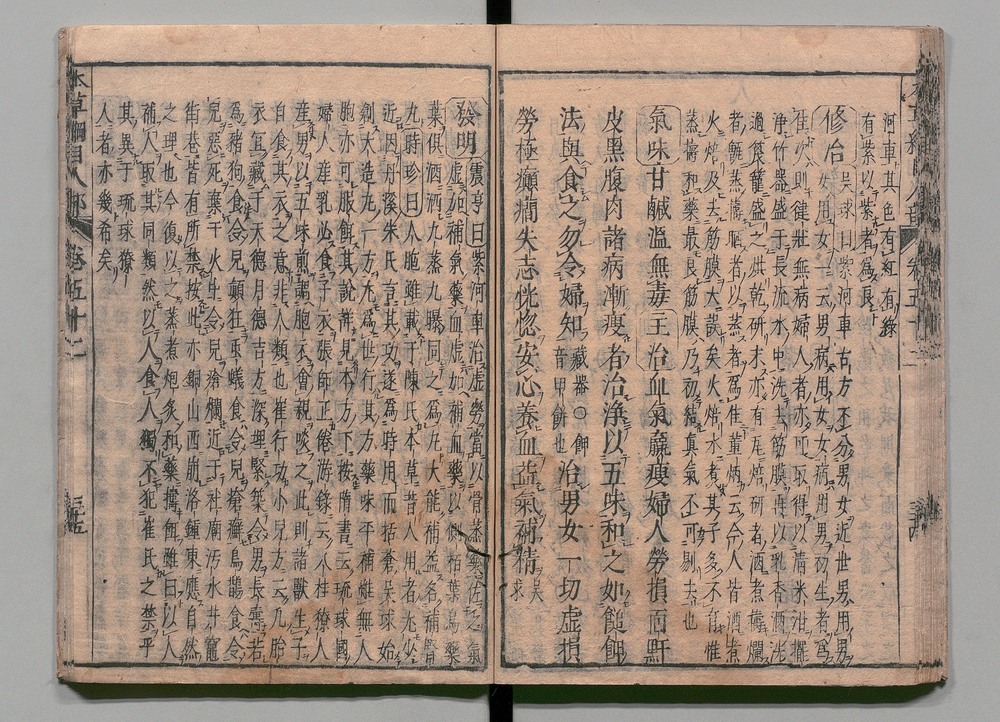 河車其色有紅有綠
有紫以紫者為良
修治 吳球曰紫河車古方不分男女近世男用男
女用女一云男病用女女病用男初生者為
佳次則健壯無病婦人者亦可取得以清米泔擺
淨竹器盛于長流水中洗去筋膜再以乳香酒洗
過篾籠盛之烘乾研末亦有瓦焙研者酒煮擣爛
者甑蒸擣晒者以蒸者為佳董炳云今人皆酒煮
火焙及去筋膜大誤矣火焙水煮其子多不育惟
蒸擣和藥最良筋膜乃初結真氣不可剔去也
氣味甘鹹溫無毒主治血氣羸瘦婦人勞損面䵟
皮黑腹內諸病漸瘦者治淨以五味和之如𩜶䭔
法與食之勿令婦知 藏器○䭔音甲餅也 治男女一切虛損
勞極癲癇失志恍惚安心養血益氣補精 吳球
發明 震亨曰紫河車治虛勞當以骨蒸藥佐之氣
虛加補氣藥血虛加補血藥以側柏葉烏藥
葉俱酒洒九蒸九曝同之為丸大能補益名補腎
丸時珍曰人胞雖載于陳氏本草昔人用者尤少
近因丹溪朱氏言其功遂為時用而括蒼吳球始
創大造丸一方尤為世行其方藥味平補雖無人
胞亦可服餌其說詳見本方下按隋書云琉球國
婦人產乳必食子衣張師正倦游錄云八桂獠人
產男以五味煎調胞衣會親啖之此則諸獸生子
自食其衣之意非人類也崔行功小兒方云凡胎
衣宜藏于天德月德吉方深埋緊築令男長壽若
為豬狗食令兒顛狂蟲蟻食令兒瘡癬鳥鵲食令
兒惡死棄于火中令兒瘡爛近于社廟污水井竈
街巷皆有所禁按此亦銅山西崩洛鍾東應自然
之理也今復以之蒸煮炮炙和藥擣餌雖曰以人
補人取其同類然以人食人獨不犯崔氏之禁乎
其異于琉球獠
人者亦幾希矣